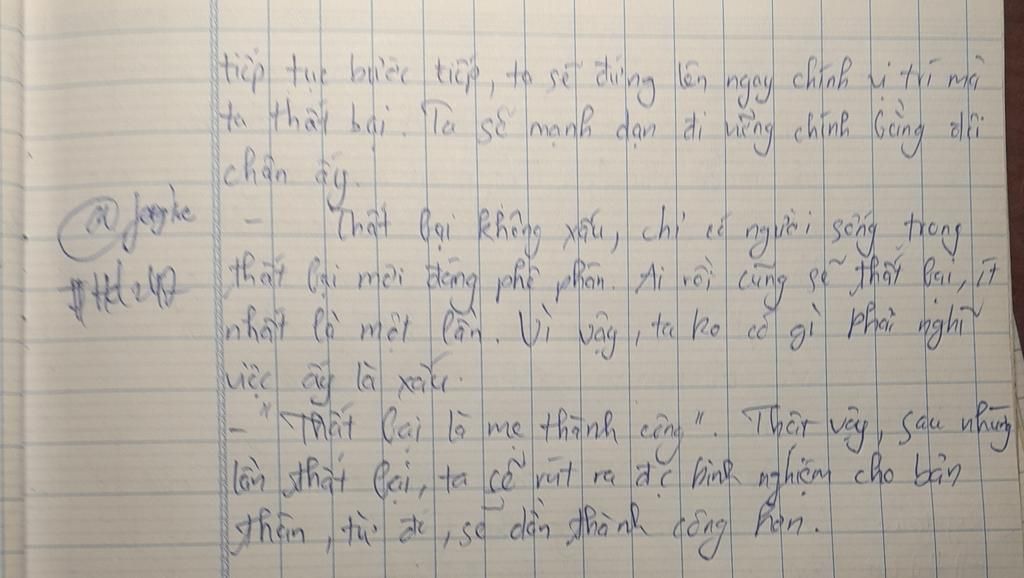 tiếp tục bước tiếp, ta sẽ đứng lên ngay chính vị trí mà
ta thất bại. Ta sẽ mạnh dạn đi riêng chính bằng đôi
chân ấy.
- Thất bại không xấu, chỉ có người sống trong
thất bại mới đáng phê phán. Ai rồi cũng sẽ thất bại, ít
nhất là một lần. Vì vậy, ta ko có gì phải nghĩ
việc ấy là xấu.
- "Thất bại là mẹ thành công". Thật vậy, sau những
lần thất bại, ta sẽ rút ra đc kinh nghiệm cho bản
thân, từ đó, sẽ dần thành công hơn.